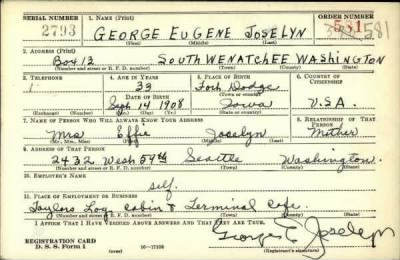 SERIAL NUMBER 1. NAME (Print) ORDER NUMBER
2793 GEORGE EUGENE JOSELYN 531 581
(First) (Middle) (Last)
2. ADDRESS (Print)
Box 13 SOUTH WENATCHEE WASHINGTON
(Number and street or R. F. D. number) (Town) (County) (State)
3. TELEPHONE 4. AGE IN YEARS 5. PLACE OF BIRTH 6. COUNTRY OF CITIZENSHIP
33 Fort Dodge
DATE OF BIRTH (Town or county)
Sept 14 1908 Iowa U.S.A.
(Mo.) (Day) (Yr.) (State or country)
7. NAME OF PERSON WHO WILL ALWAYS KNOW YOUR ADDRESS 8. RELATIONSHIP OF THAT PERSON
Mrs Effie Joselyn Mother
(Mr., Mrs., Miss) (First) (Middle) (Last)
9. ADDRESS OF THAT PERSON
2432 West 59th Seattle Washington.
(Number and street or R. F. D. number) (Town) (County) (State)
10. EMPLOYER'S NAME
self.
11. PLACE OF EMPLOYMENT OR BUSINESS
Taylors Log Cabin & Terminal Cafe.
(Number and street or R. F. D. number) (Town) (County) (State)
I AFFIRM THAT I HAVE VERIFIED ABOVE ANSWERS AND THAT THEY ARE TRUE.
George E Joselyn
REGISTRATION CARD
D. S. S. Form 1 16—17105 (Registrant's signature)